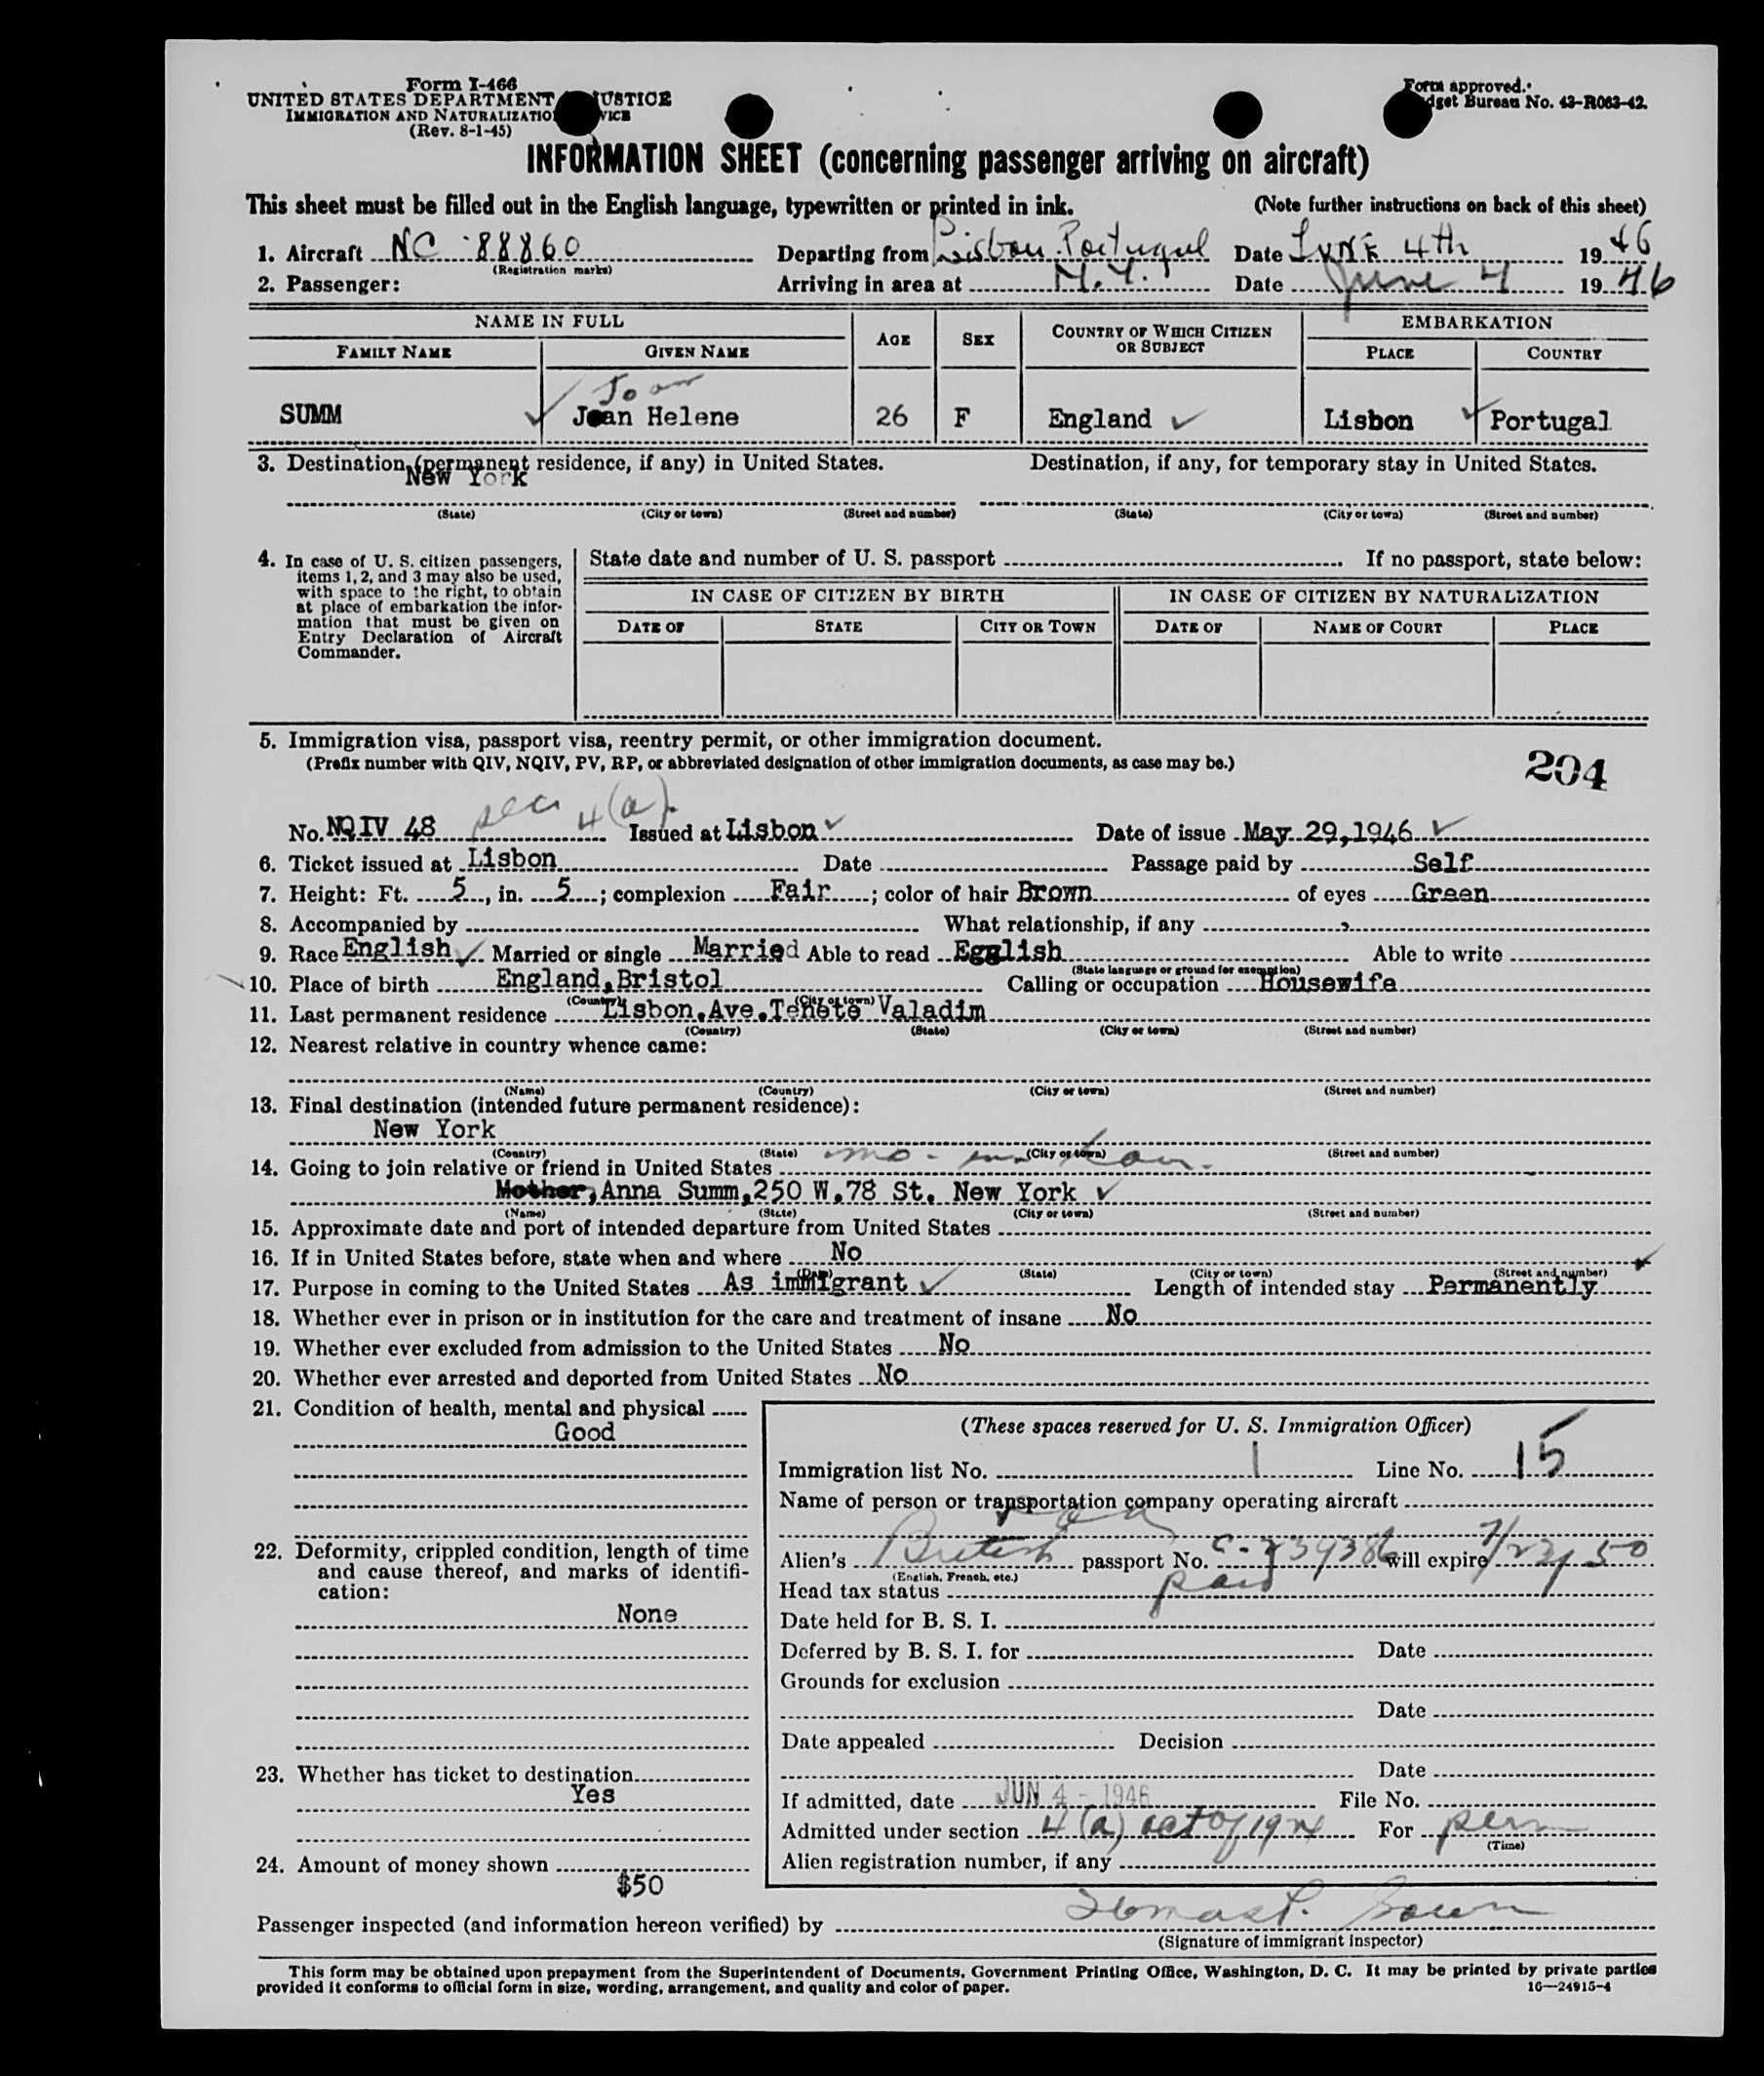 Form I-466
UNITED STATES DEPARTMENT USTICE
IMMIGRATION AND NATURALIZATIO VICE
(Rev. 8-1-45)
Form approved.
dget Bureau No. 43-R063-42.
INFORMATION SHEET (concerning passenger arriving on aircraft)
This sheet must be filled out in the English language, typewritten or printed in ink. (Note further instructions on back of this sheet)
1. Aircraft NC 88860 Departing from Lisbon Portugal Date JUNE 4th 1946
(Registration marks)
2. Passenger: Arriving in area at N.Y. Date June 4 1946
NAME IN FULL AGE SEX COUNTRY OF WHICH CITIZEN OR SUBJECT EMBARKATION
FAMILY NAME GIVEN NAME PLACE COUNTRY
Joan
SUMM Joan Helene 26 F England Lisbon Portugal
3. Destination (permanent residence, if any) in United States. Destination, if any, for temporary stay in United States.
New York
(State) (City or town) (Street and number) (State) (City or town) (Street and number)
4. In case of U. S. citizen passengers, items 1, 2, and 3 may also be used, with space to the right, to obtain at place of embarkation the information that must be given on Entry Declaration of Aircraft Commander.
State date and number of U. S. passport If no passport, state below:
IN CASE OF CITIZEN BY BIRTH IN CASE OF CITIZEN BY NATURALIZATION
DATE OF STATE CITY OR TOWN DATE OF NAME OF COURT PLACE
5. Immigration visa, passport visa, reentry permit, or other immigration document.
(Prefix number with QIV, NQIV, PV, RP, or abbreviated designation of other immigration documents, as case may be.)
204
No. NQIV 48 sec 4(a) Issued at Lisbon Date of issue May 29,1946
6. Ticket issued at Lisbon Date Passage paid by Self
7. Height: Ft. 5, in. 5; complexion Fair; color of hair Brown of eyes Green
8. Accompanied by What relationship, if any
9. Race English Married or single Married Able to read Egglish Able to write
(State language or ground for exemption)
10. Place of birth England,Bristol Calling or occupation Housewife
(Country) (City or town)
11. Last permanent residence Lisbon,Ave.Tenete Valadim
(Country) (State) (City or town) (Street and number)
12. Nearest relative in country whence came:
(Name) (Country) (City or town) (Street and number)
13. Final destination (intended future permanent residence):
New York
(Country) (State) (City or town) (Street and number)
14. Going to join relative or friend in United States mo-in-law
Mother,Anna Summ,250 W.78 St. New York
(Name) (State) (City or town) (Street and number)
15. Approximate date and port of intended departure from United States
16. If in United States before, state when and where No
(Date) (State) (City or town) (Street and number)
17. Purpose in coming to the United States As immigrant Length of intended stay Permanently
18. Whether ever in prison or in institution for the care and treatment of insane No
19. Whether ever excluded from admission to the United States No
20. Whether ever arrested and deported from United States No
21. Condition of health, mental and physical
Good
22. Deformity, crippled condition, length of time and cause thereof, and marks of identification:
None
23. Whether has ticket to destination
Yes
24. Amount of money shown
$50
(These spaces reserved for U. S. Immigration Officer)
Immigration list No. 1 Line No. 15
Name of person or transportation company operating aircraft
Alien's British passport No. C-239386 will expire 7/23/50
(English, French, etc.)
Head tax status paid
Date held for B. S. I.
Deferred by B. S. I. for Date
Grounds for exclusion
Date
Date appealed Decision
Date
If admitted, date JUN 4 - 1946 File No.
Admitted under section 4(a) act of 1924 For perm
(Time)
Alien registration number, if any
Passenger inspected (and information hereon verified) by
(Signature of immigrant inspector)
This form may be obtained upon prepayment from the Superintendent of Documents, Government Printing Office, Washington, D. C. It may be printed by private parties
provided it conforms to official form in size, wording, arrangement, and quality and color of paper. 16—24915-4